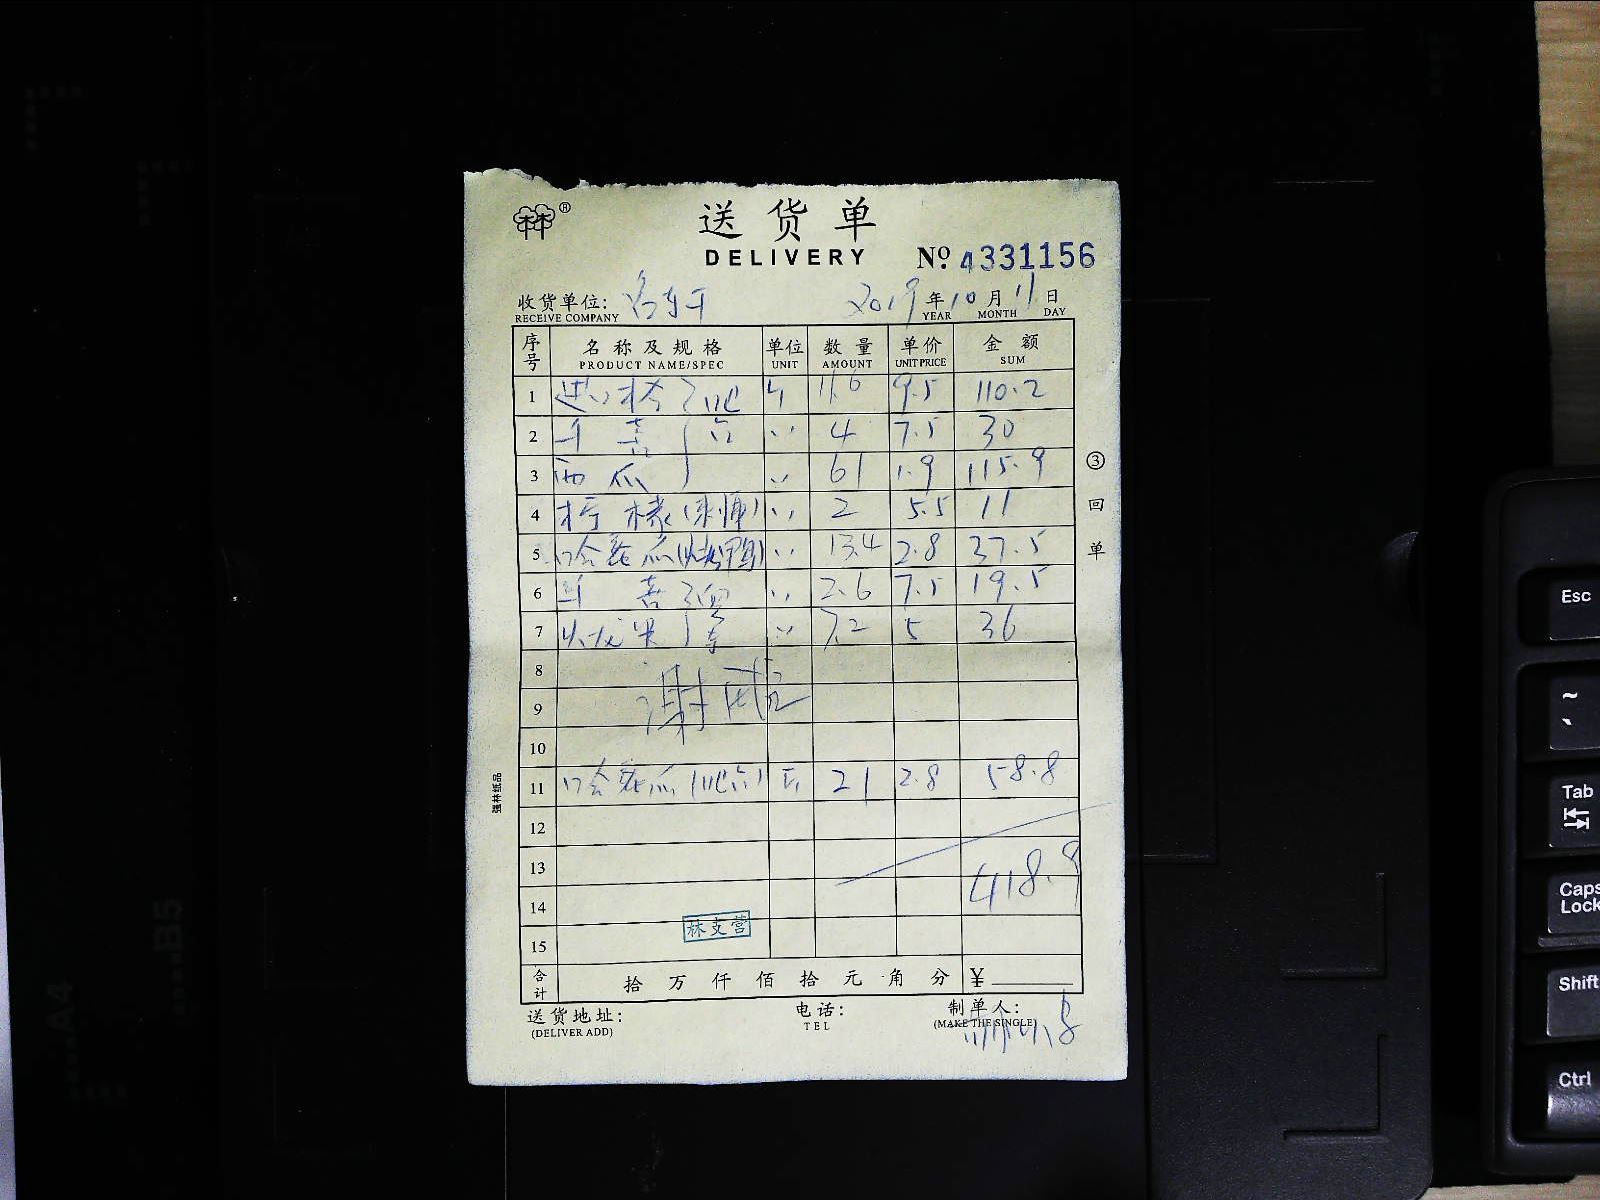 林®
送货单
DELIVERY
No. 4331156
收货单位:
2019 年 10 月 11 日
RECEIVE COMPANY YEAR MONTH DAY
序号 名称及规格 单位 数量 单价 金额
PRODUCT NAME/SPEC UNIT AMOUNT UNIT PRICE SUM
1 进口橙 斤 11.6 9.5 110.2
2 〃 4 7.5 30
3 西瓜 〃 61 1.9 115.9
4 柠檬 〃 2 5.5 11
5 哈密瓜(烧鸭) 〃 13.4 2.8 37.5
6 〃 2.6 7.5 19.5
7 火龙果 〃 7.2 5 36
8
9
10
11 哈密瓜 斤 21 2.8 58.8
12
13
14 418.9
15
林文营
合计 拾 万 仟 佰 拾 元 角 分 ¥
送货地址: 电话: 制单人:
(DELIVER ADD) TEL (MAKE THE SINGLE)
③回单
强林纸品
A4
B5
Esc
~
`
Tab
Caps Lock
Shift
Ctrl